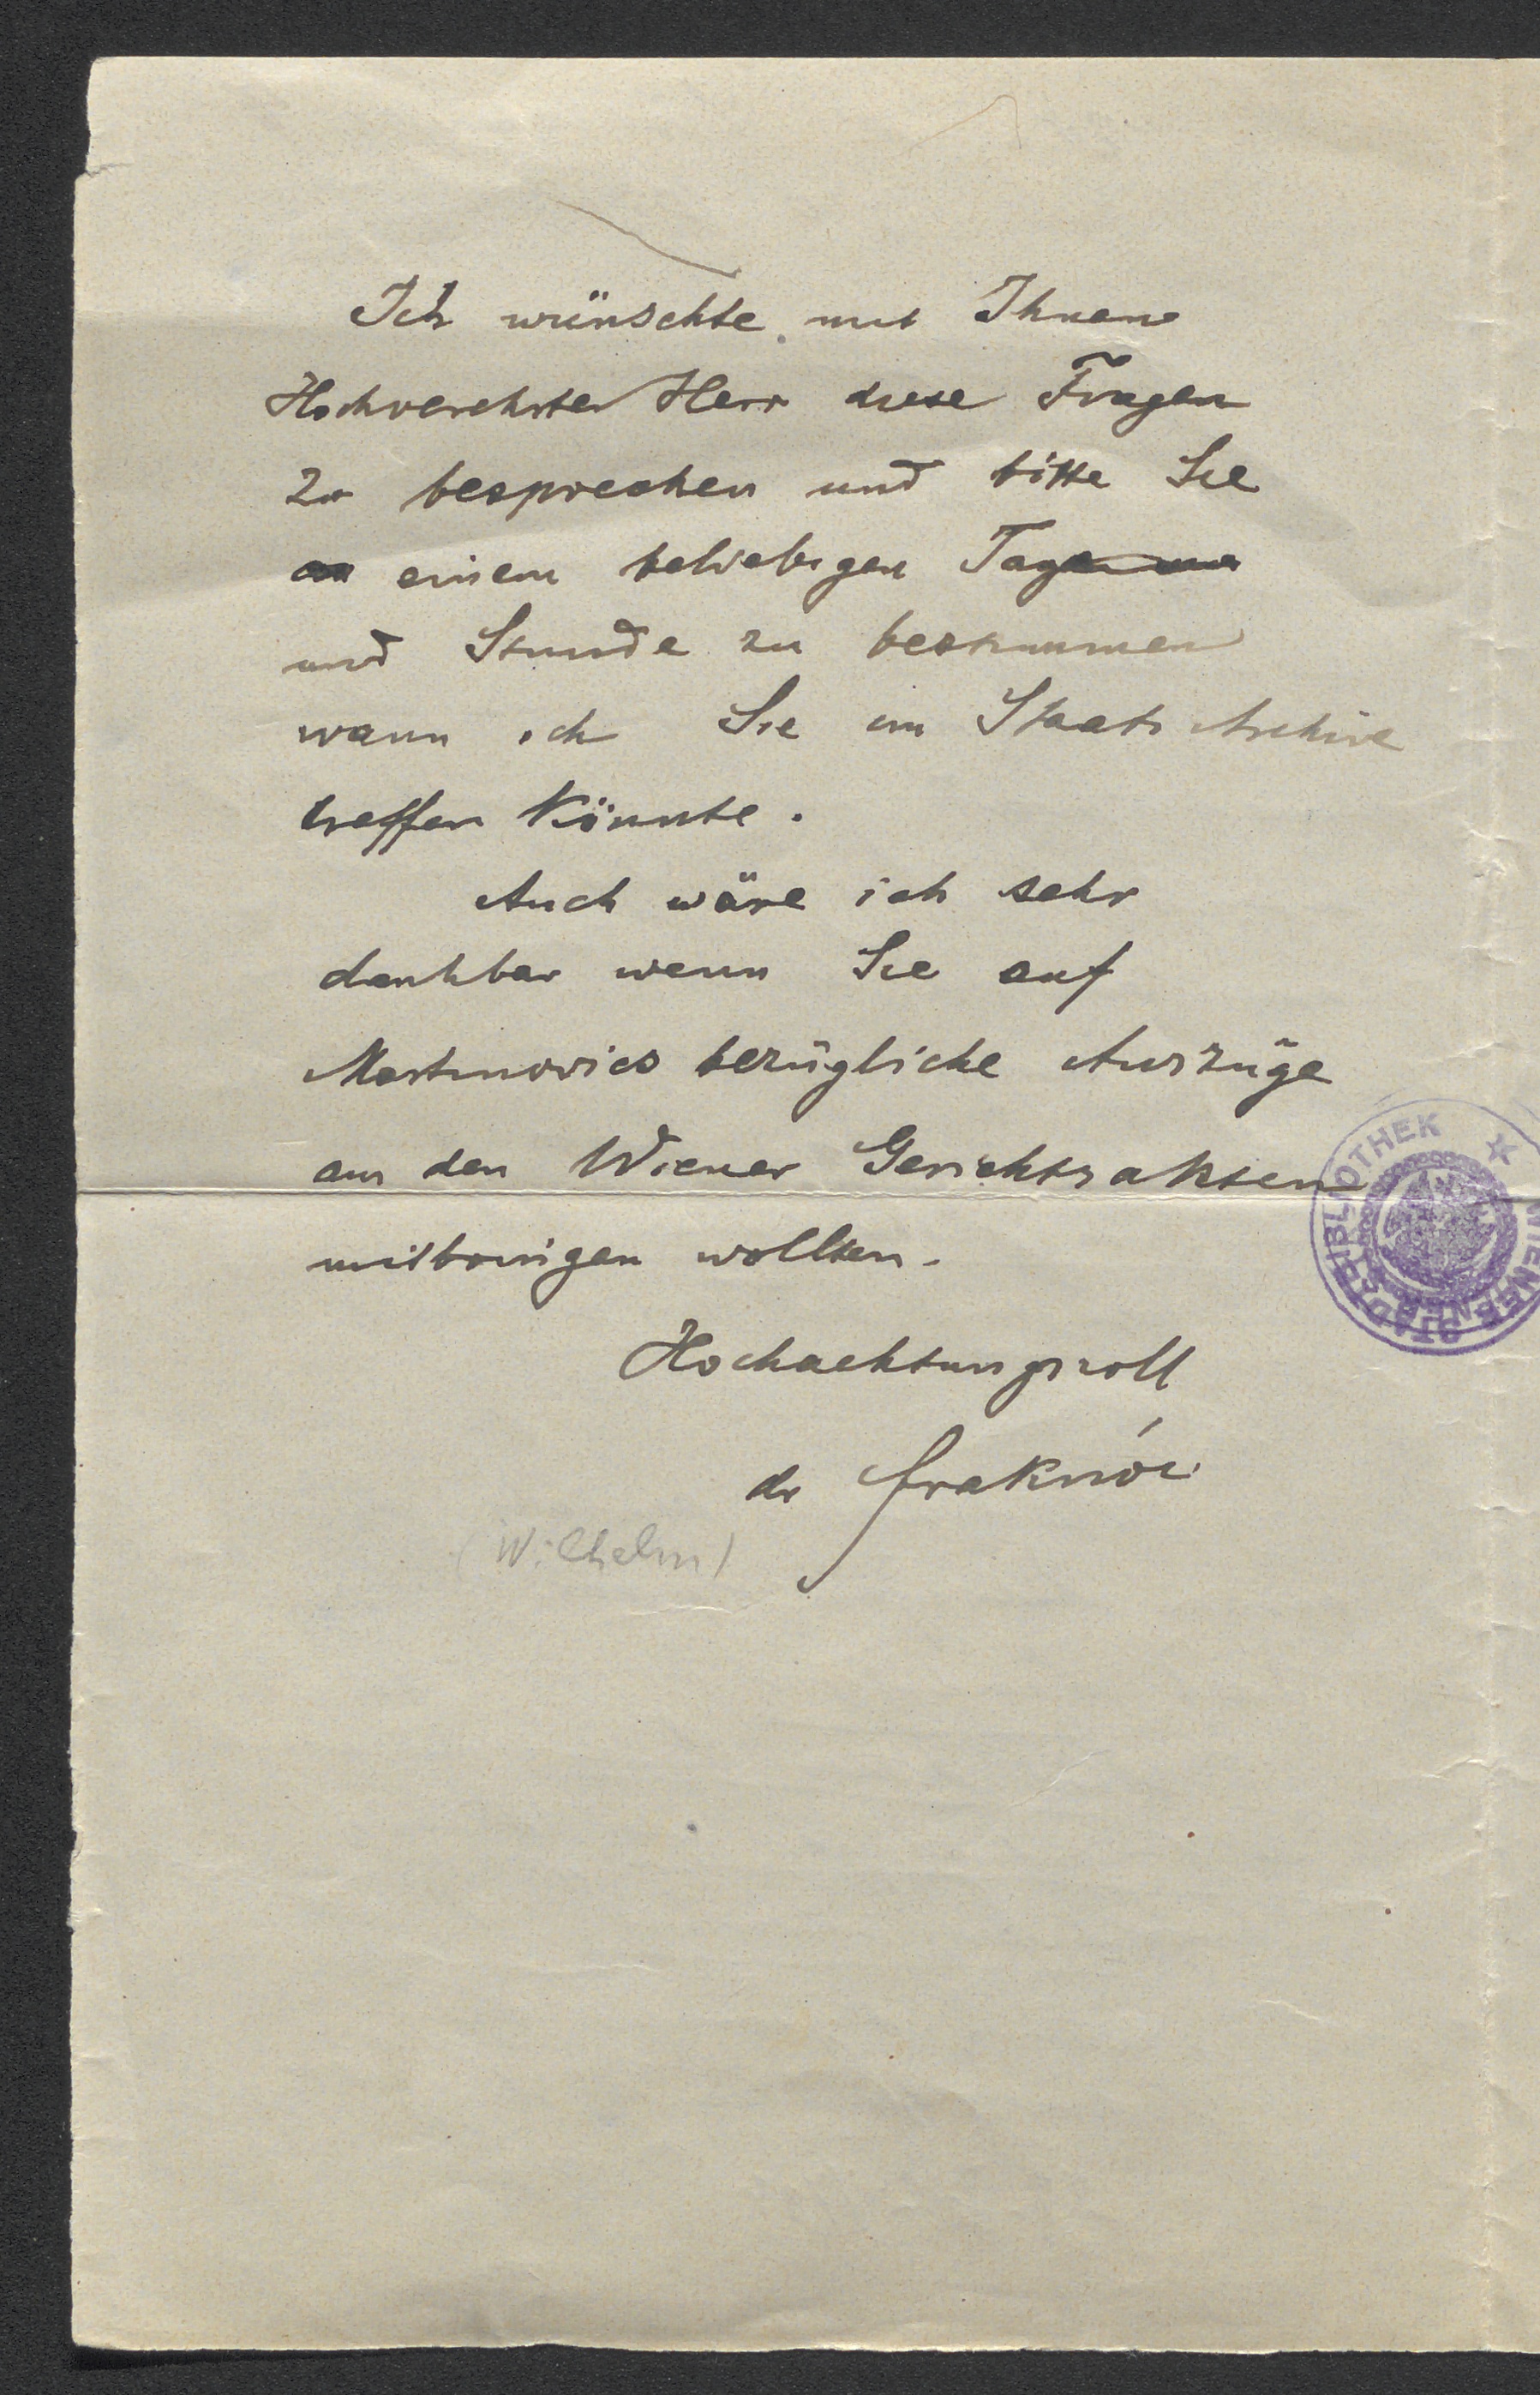 Ich wünschte mit Ihnen
Hochverehrter Herr diese Fragen
zu besprechen und bitte Sie
einem beliebigen Tag
und Stunde zu bestimmen
wann ich Sie im Staats Archive
treffen könnte.
Auch wäre ich sehr
dankbar wenn Sie auf
Martinovics bezügliche Auszüge
aus den Wiener Gerichtsakten
mitbringen wollten.
Hochachtungsvoll
dr Fraknói
(Wilhelm)
BIBLIOTHEK